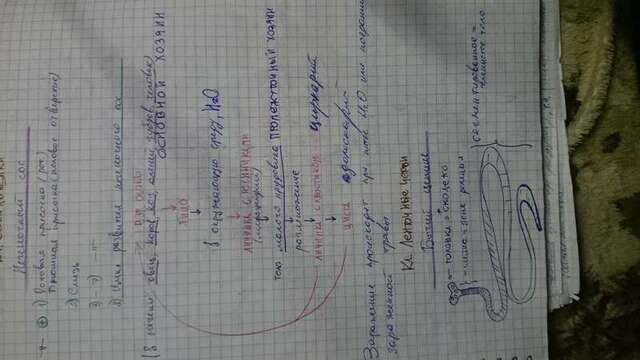 Печёночный сос
1) Ротовая присоска (рот)
Брюшная присоска (половое отверстие)
2) Слизь
3)
Цикл развития печёночного сос
(в печени овец, коров, коз, свиней, зубров, человека)
ОСНОВНОЙ ХОЗЯИН
ЯЙЦО
в окружающую среду, H2O
личинка с ресничками
(мирацидий)
тело малого прудовика ПРОМЕЖУТОЧНЫЙ ХОЗЯИН
размножение
личинка с хвостиком церкарий
циста адолескарий
Заражение происходит при питье H2O или поедании
заражённой травы
Кл. Ленточные черви
Бычий цепень
головка = сколекс
шейка = зона роста
сегментированное =
членистое тело